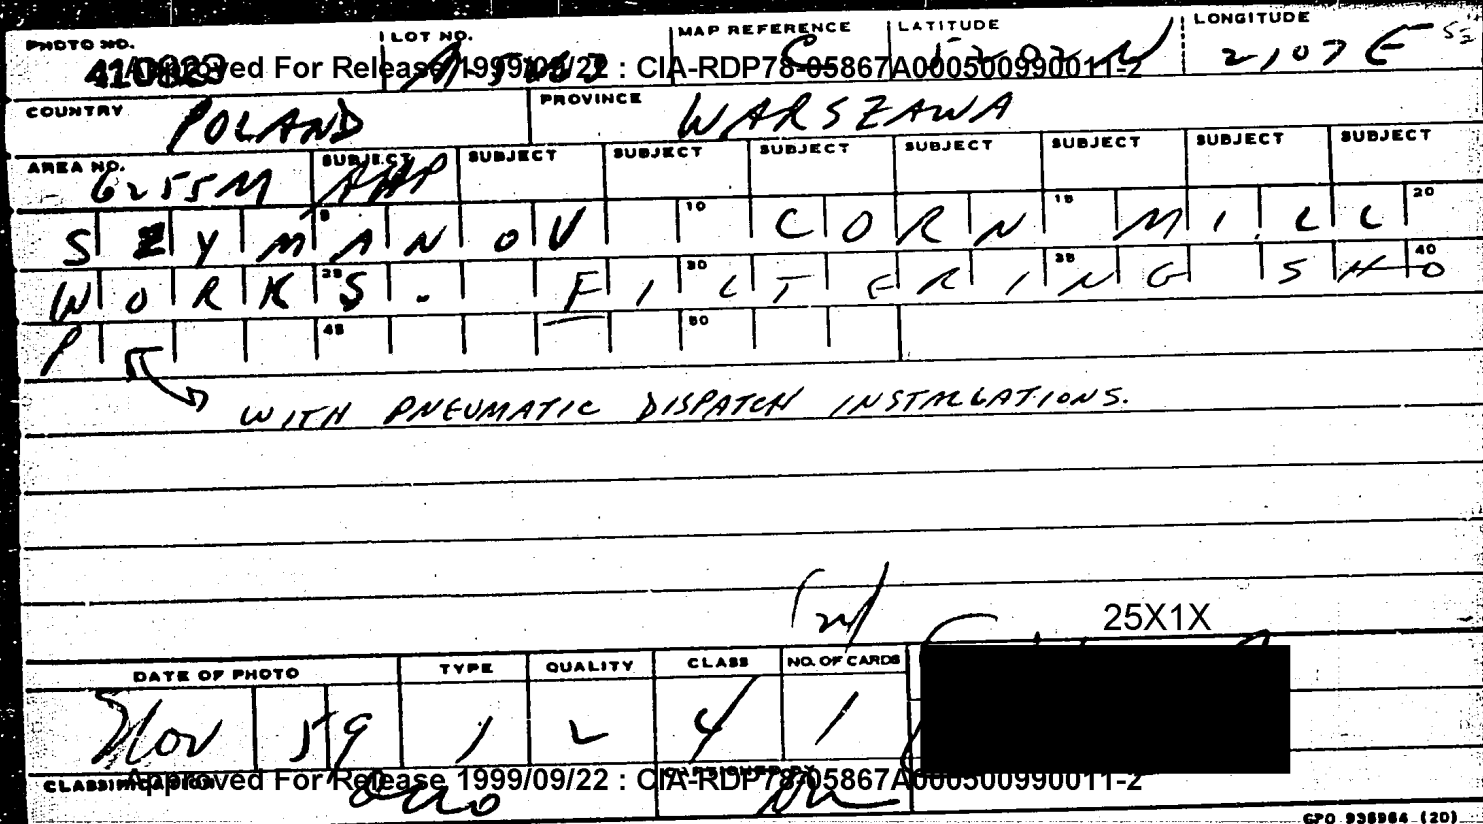 PHOTO NO. LOT NO. MAP REFERENCE LATITUDE LONGITUDE
410823 C 52 02 N 2107 E
Approved For Release 1999/09/22 : CIA-RDP78-05867A000500990011-2
COUNTRY POLAND PROVINCE WARSZAWA
AREA NO. SUBJECT SUBJECT SUBJECT SUBJECT SUBJECT SUBJECT SUBJECT SUBJECT
6255M
5 10 15 20
SZYMANOV CORN MILL
25 30 35 40
WORKS. FILTERING SHO
45 50
P
WITH PNEUMATIC DISPATCH INSTALLATIONS.
25X1X
DATE OF PHOTO TYPE QUALITY CLASS NO. OF CARDS
Nov 59 1 2 4 1
CLASSIFICATION CLASSIFIED BY
Approved For Release 1999/09/22 : CIA-RDP78-05867A000500990011-2
GPO 938964 (20)